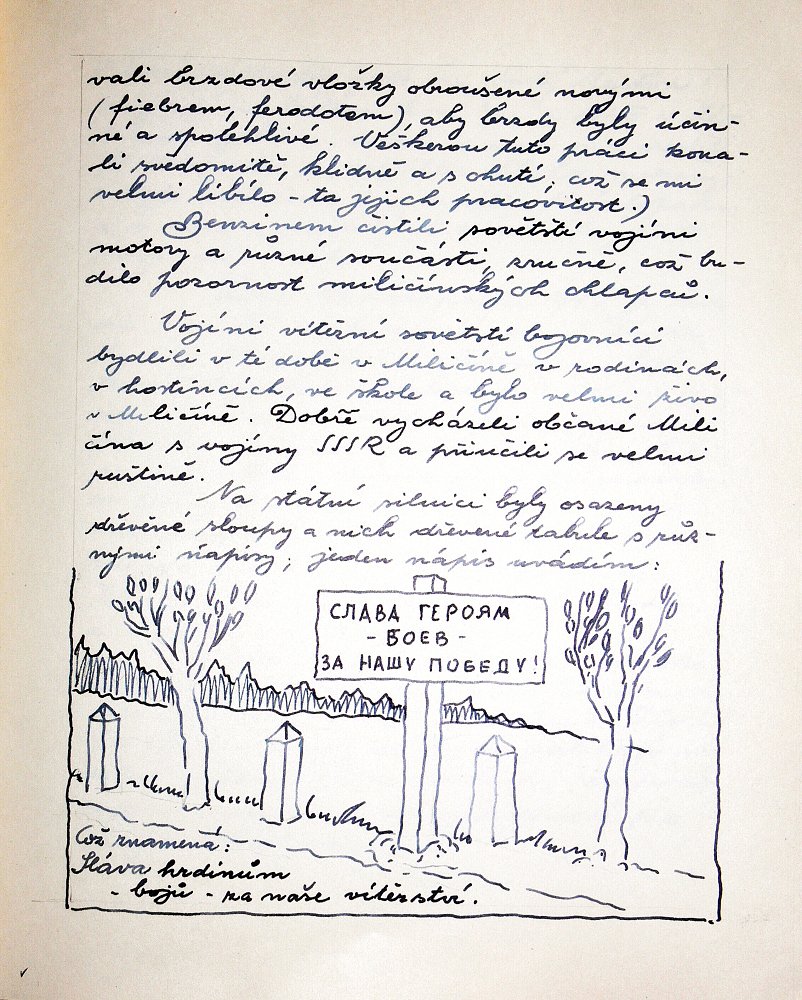 vali brzdové vložky obroušené novými
(fiebrem, ferodotem), aby brzdy byly účin-
né a spolehlivé. Veškerou tuto práci kona-
li svědomitě, klidně a s chutí, což se mi
velmi líbilo - ta jejich pracovitost.)
Benzinem čistili sovětští vojíni
motory a různé součásti, zručně, což bu-
dilo pozornost miličínských chlapců.
Vojíni vítězní sovětstí bojovníci
bydlili v té době v Miličíně v rodinách,
v hostincích, ve škole a bylo velmi živo
v Miličíně. Dobře vycházeli občané Mili
čína s vojíny SSSR a přiučili se velmi
ruštině.
Na státní silnici byly osazeny
dřevěné sloupy a nich dřevené tabule s růz-
nými nápisy; jeden nápis uvádím:
СЛАВА ГЕРОЯМ
- БОЕВ -
ЗА НАШУ ПОБЕДУ!
Což znamená:
Sláva hrdinům
- bojů - za naše vítězství.